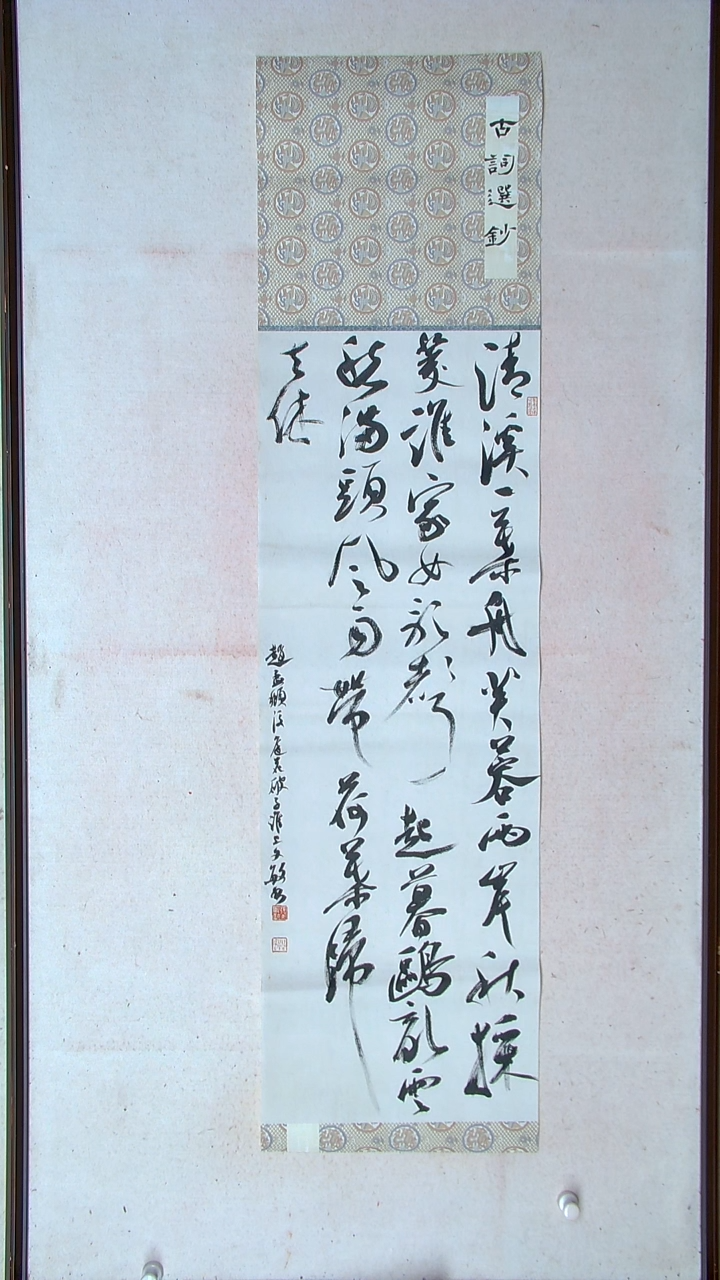 古詞選鈔
清溪一葉舟芙蓉兩岸秋採
菱誰家女歌聲起暮鷗亂雲
愁滿頭風雨帶荷葉歸
去休
趙孟頫後庭花破子